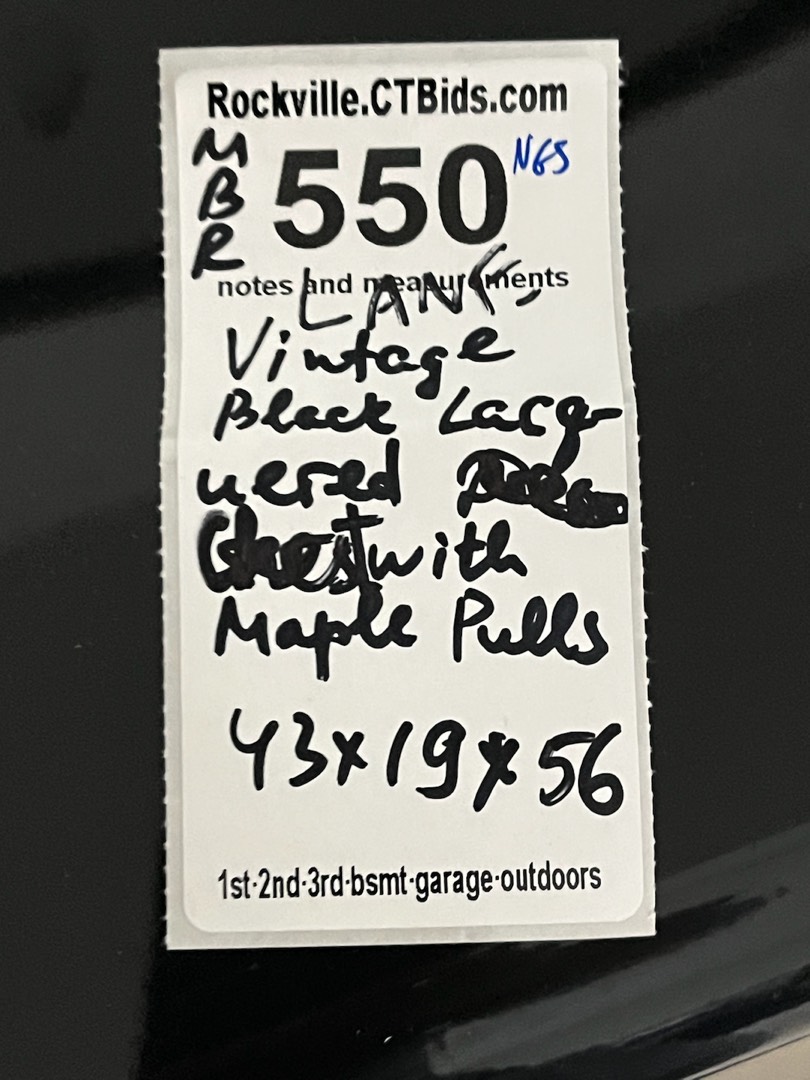 Rockville.CTBids.com
MBR
550
NGS
notes and measurements
LANE
Vintage
Black Lacq-
uered
Chest with
Maple Pulls
43x19x56
1st·2nd·3rd·bsmt·garage·outdoors